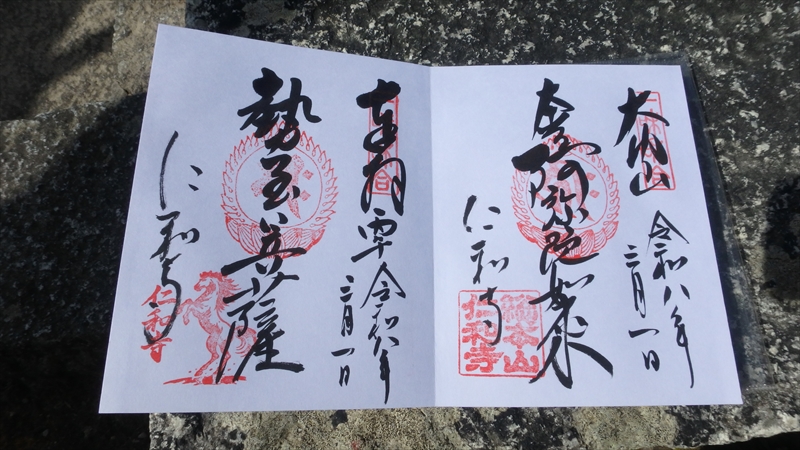 大内山
令和八年
三月一日
阿弥陀如来
仁和寺
総本山
仁和寺
令和八年
三月一日
勢至菩薩
仁和寺
仁和寺